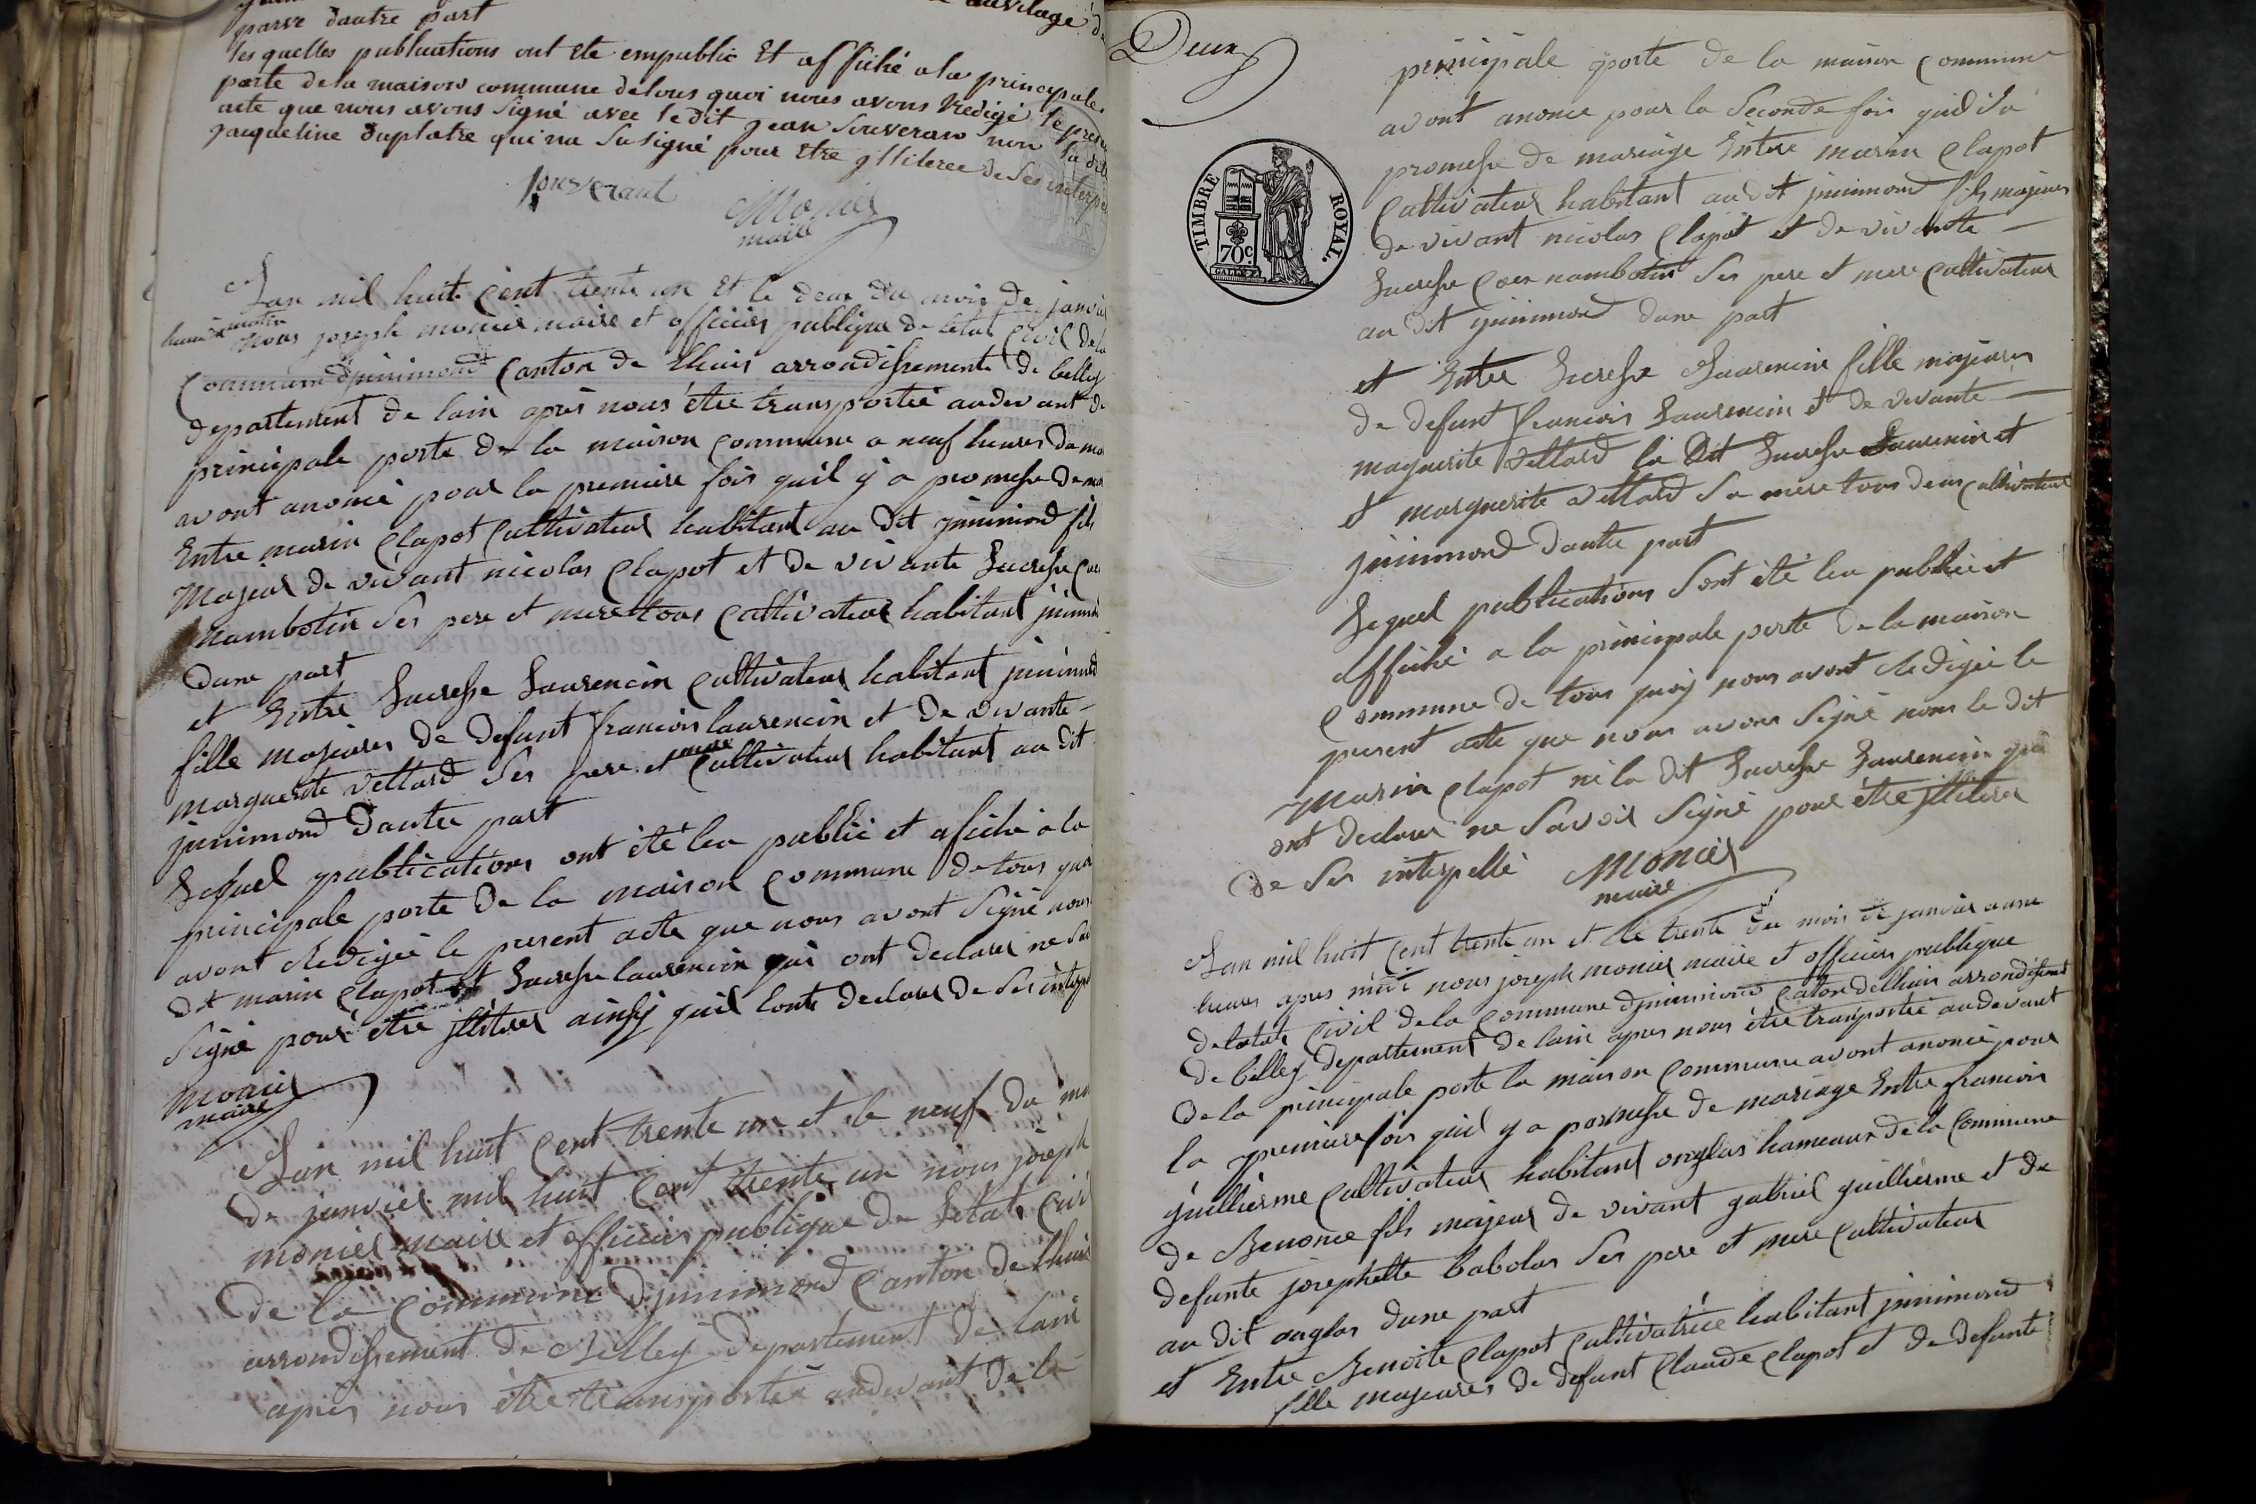 parse dautre part
les quelles publications ont ete empublie Et affiché a la principale
porte de la maison commune de tous quoi nous avons Redigé le presen
acte que nous avons signé avec le dit jean souveran non la dite
jacqueline duplatre qui na su signé pour Etre illiteree de ses interp
souverant Monier
maire
Lan mil huit cent trente un Et le deux du mois de janvier
matin
nous joseph monier maire et officier publique de letat Civil de la
Commune djuinimond Canton de lhuis arrondissement de belley
departement de lain apres nous être transportié au devant de
principale porte de la maison commune a neuf heures du ma
avont anoncé pour la premiere fois quil y a promesse de ma
Entre marin Clapot Cultivateur habitant au dit juinimond fils
Majeur de vivant nicolas Clapot et de vivante
nambotin ses pere et mere tous Cultivateur habitant juinim
dune part
et Entre Laurencin Cultivateur habitant juinimond
fille majeures de defunt francois laurencin et de vivante
marguerite vettard ses pere et mere Cultivateur habitant au dit
juinimond dautre part
Lequel publications ont été leu publié et afiché a la
principale porte de la maison Commune de tous quoi
avont Redigée le present acte que nous avont Signé nous
dit marin Clapot et laurencin qui ont declarer ne sav
Signé pour être illitere ainsy quil lonts declarer de ses interp
Monier
maire
Lan mil huit Cent trente un et le neuf du mo
de janvier mil huit Cent trente un nous joseph
monier maire et officier publique de letat Civi
de la Commune djuinimond Canton de lhuis
arrondissement de Belley departement de lain
apres nous être transportée au devant de la
Deux
TIMBRE ROYAL.
70c.
principale porte de la maison commune
avont anonce pour la Seconde fois quil i a
promesse de mariage Entre marin Clapot
Cultivateur habitant au dit juinimond fils majeurs
de vivant nicolas Clapot et de vivante
nambotin Ses pere et mere Cultivateur
au dit juinimond dune part
et Entre Laurencin fille majeures
de defunt francois Laurencin et de vivante
marguerite vettard la dit Laurencin et
et marguerite vettard Sa mere tous deux Cultivateur
juinimond dautre part
Lequel publications Sont été leu publié et
affiché a la principale porte de la maison
Commune de tous quoy nous avont Redigée le
present acte que nous avons Signé nous le dit
Marin Clapot ni la dit Laurencin qui
ont declarer ne Savoir Signé pour être illitere
de Ses interpellé Monier
maire
Lan mil huit Cent trente un et le trente du mois de janvier a une
heures apres midi nous joseph monier maire et officier publique
de letat Civil de la Commune djuinimond Caton de lhuis arrondissement
de belley departement de lain apres nous être transportée au devant
de la principale porte la maison Commune avont anoncé pour
la premiere fois quil y a promesse de mariage Entre francois
juillierme Cultivateur habitant onglas hameaux de la Commune
de Benonce fils majeur de vivant gabriel guillierme et de
defunte josephette babolas Ses pere et mere Cultivateur
au dit onglas dune part
et Entre Benoite Clapot Cultivatrice habitant juinimond
fille majeures de defunt Claude Clapot et de defunte